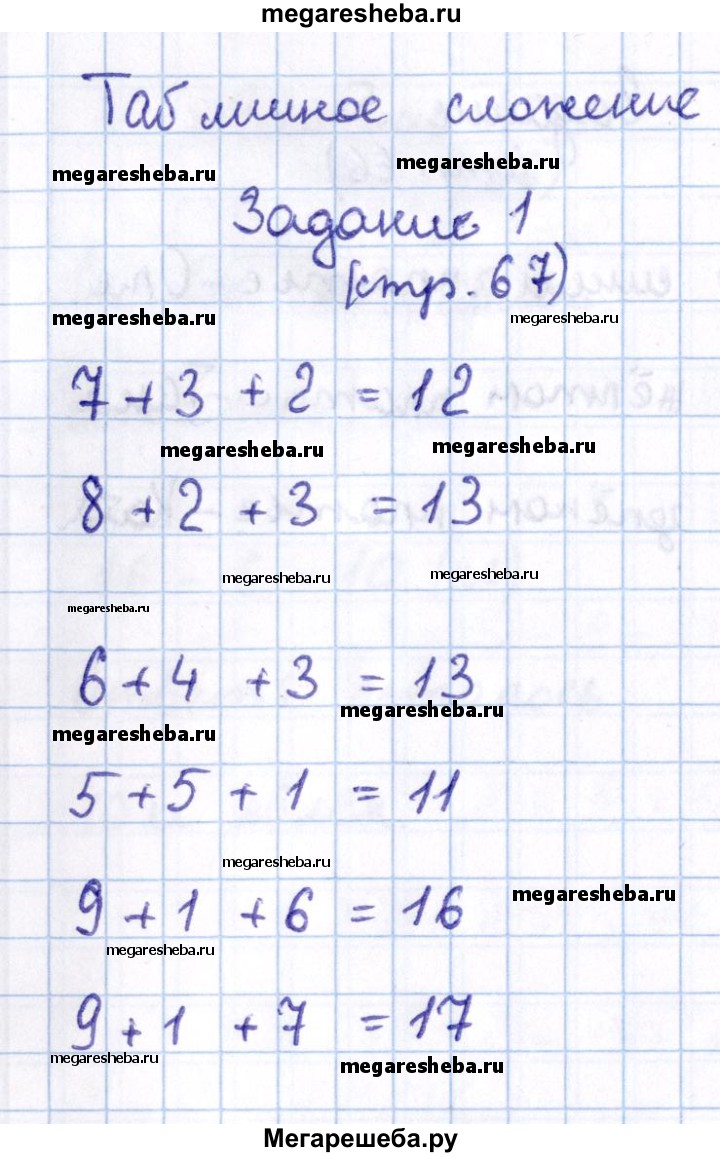 megaresheba.ru
Табличное сложение
megaresheba.ru megaresheba.ru
Задание 1
(стр. 67)
megaresheba.ru megaresheba.ru
7 + 3 + 2 = 12
megaresheba.ru megaresheba.ru
8 + 2 + 3 = 13
megaresheba.ru megaresheba.ru
megaresheba.ru
6 + 4 + 3 = 13
megaresheba.ru megaresheba.ru
5 + 5 + 1 = 11
megaresheba.ru
9 + 1 + 6 = 16
megaresheba.ru megaresheba.ru
9 + 1 + 7 = 17
megaresheba.ru megaresheba.ru
Мегарешеба.ру